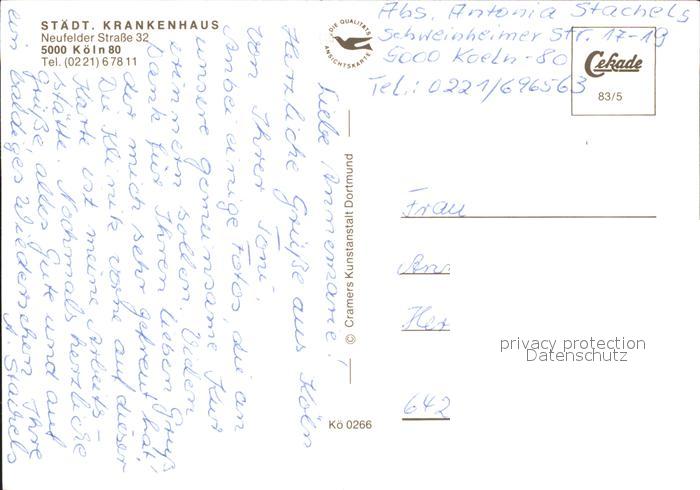 STÄDT. KRANKENHAUS
Neufelder Straße 32
5000 Köln 80
Tel. (0221) 67811
DIE QUALITÄTS
ANSICHTSKARTE
Abs. Antonia Stachels
Schweinheimer Str. 17-19
5000 Koeln-80
Tel.: 0221/696563
Cekade
83/5
Liebe Annemarie!
Herzliche Grüße aus Köln
von Ihrer Toni.
Anbei einige Fotos, die an
unsere gemeinsame Kur
erinnern sollen. Vielen
Dank für Ihren lieben Gruß
der mich sehr gefreut hat.
Die Klinik vorne auf dieser
Karte ist meine Arbeits-
stätte. Nochmals herzliche
Grüße, alles Gute und auf
ein baldiges Wiedersehen Ihre
A. Stachels
© Cramers Kunstanstalt Dortmund
Kö 0266
Frau
Ann
Her
642
privacy protection
Datenschutz